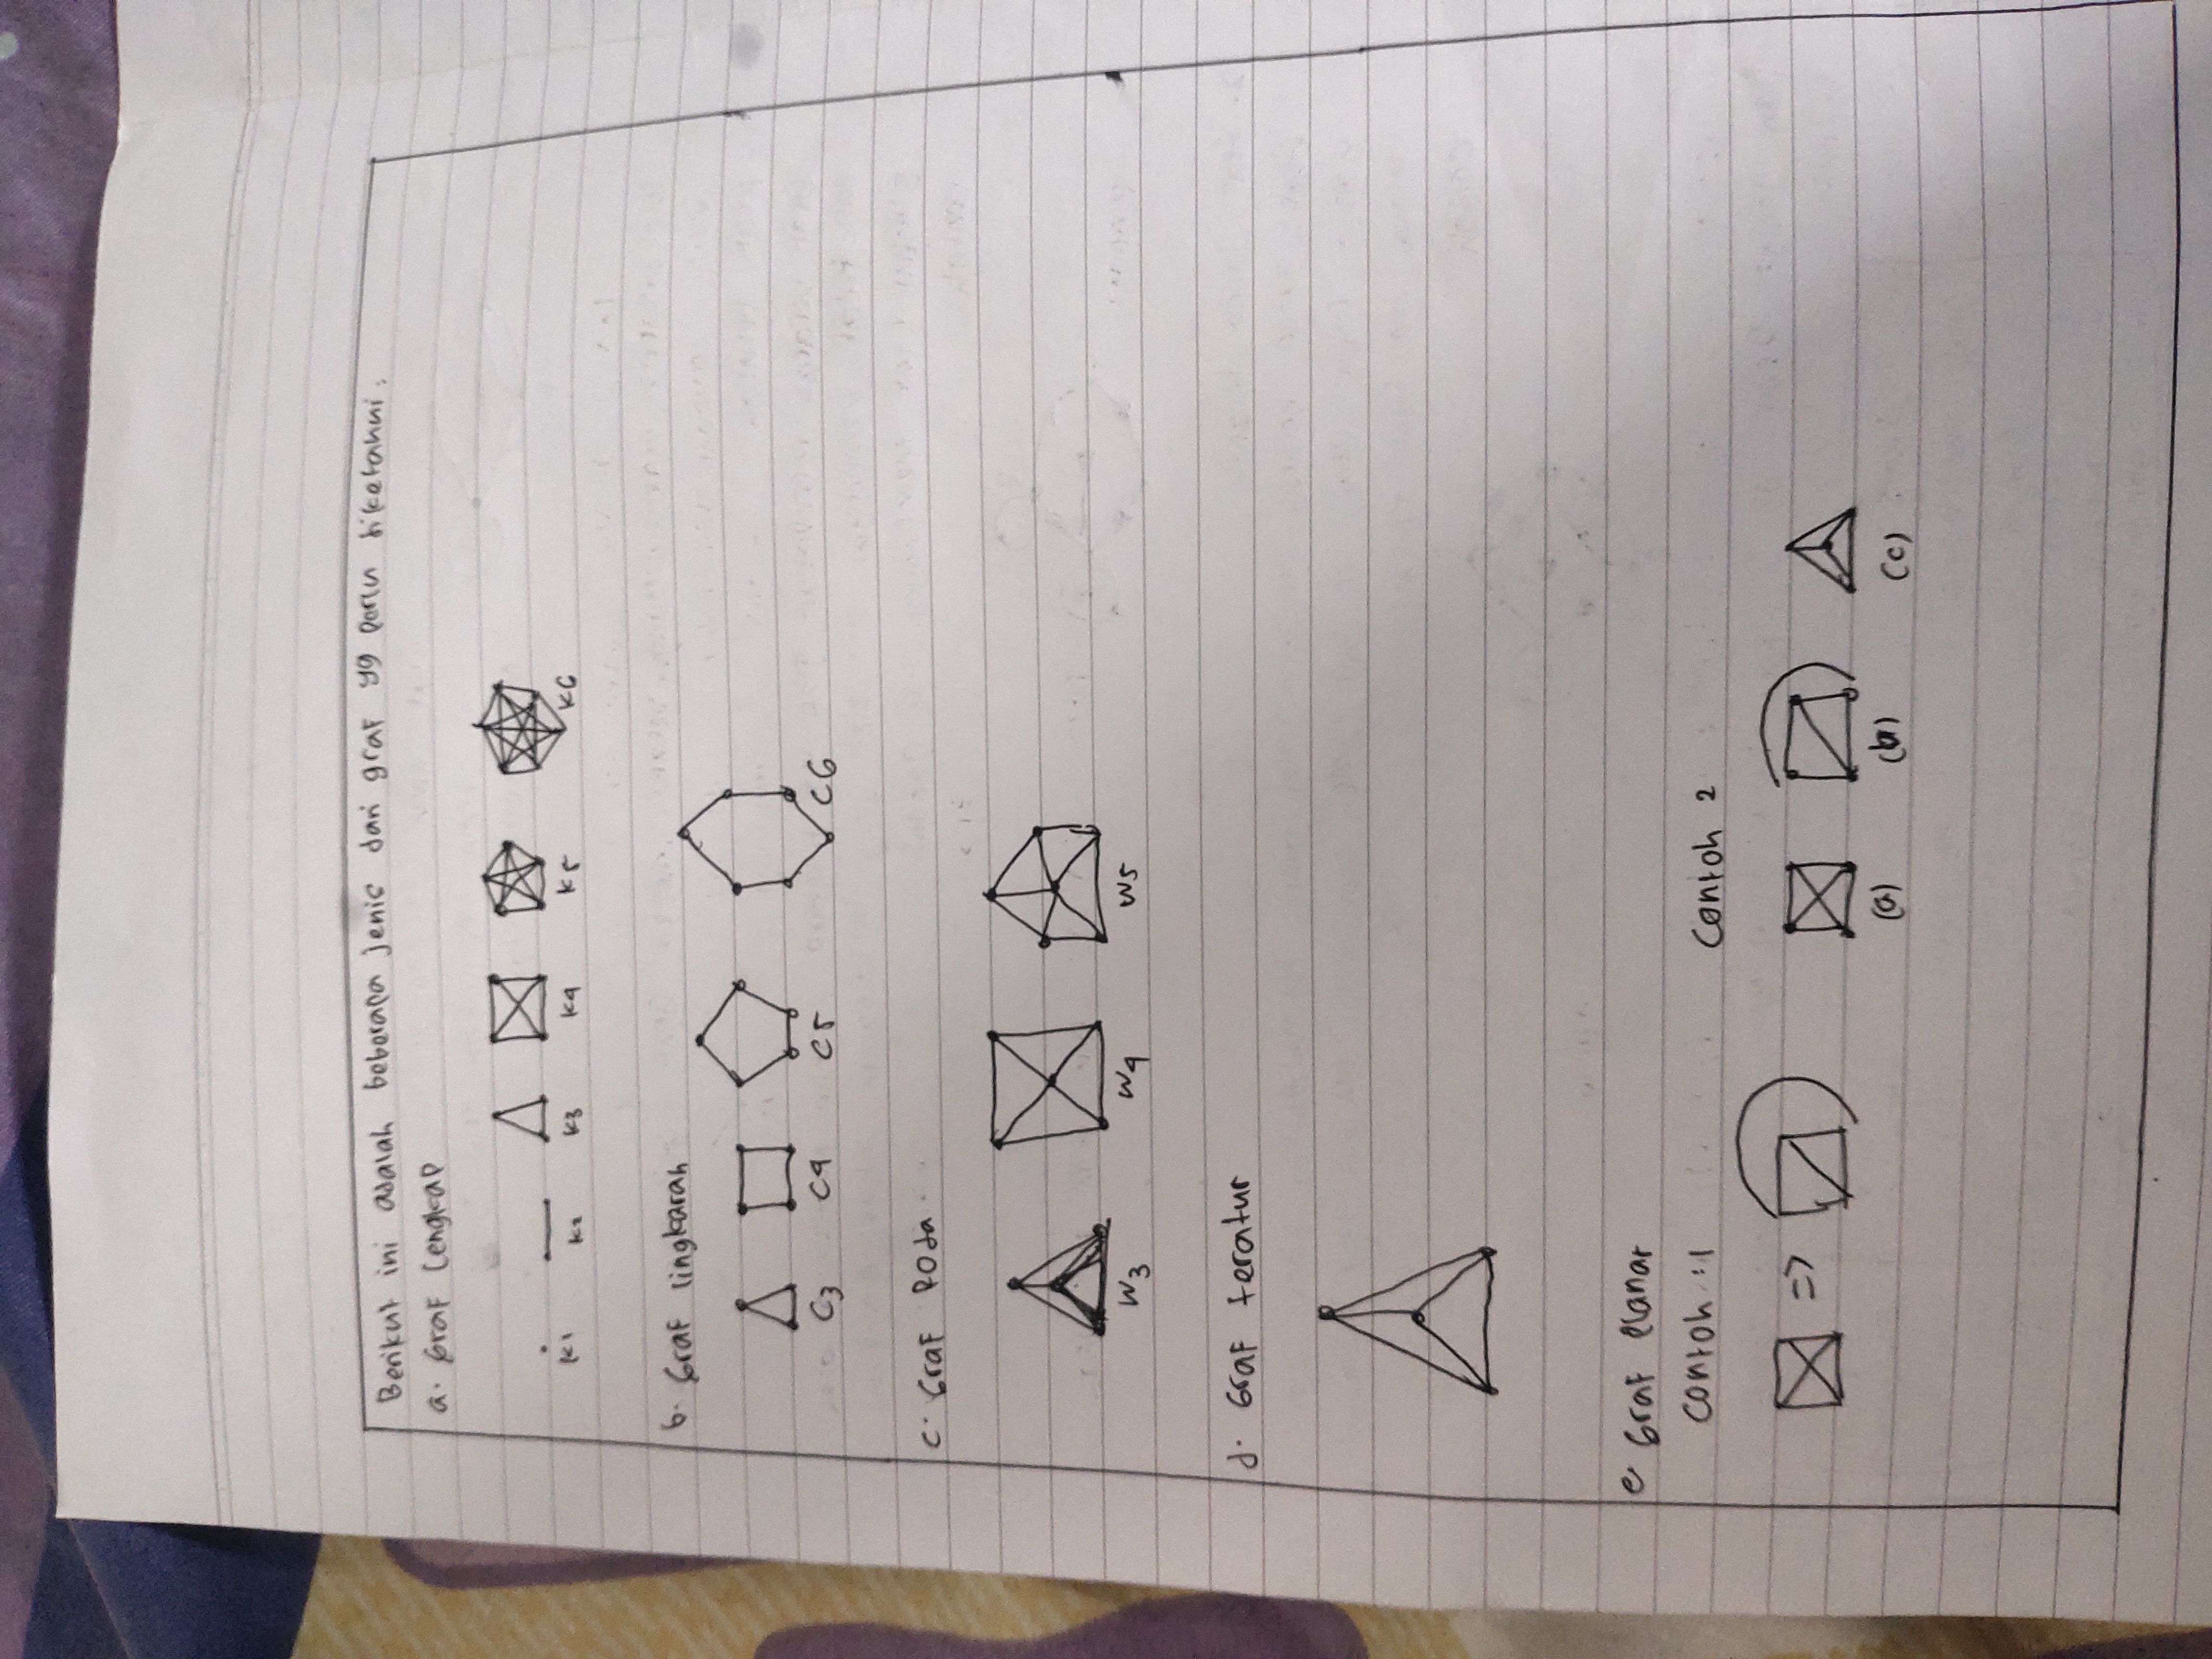 Berikut ini adalah beberapa jenis dari graf yg perlu diketahui.
a. Graf Lengkap
K1 K2 K3 K4 K5 K6
b. Graf lingkarah
C3 C4 C5 C6
c. Graf Roda
W3 W4 W5
d. Graf teratur
e Graf Planar
Contoh :1 Contoh 2
=>
(a) (b) (c)